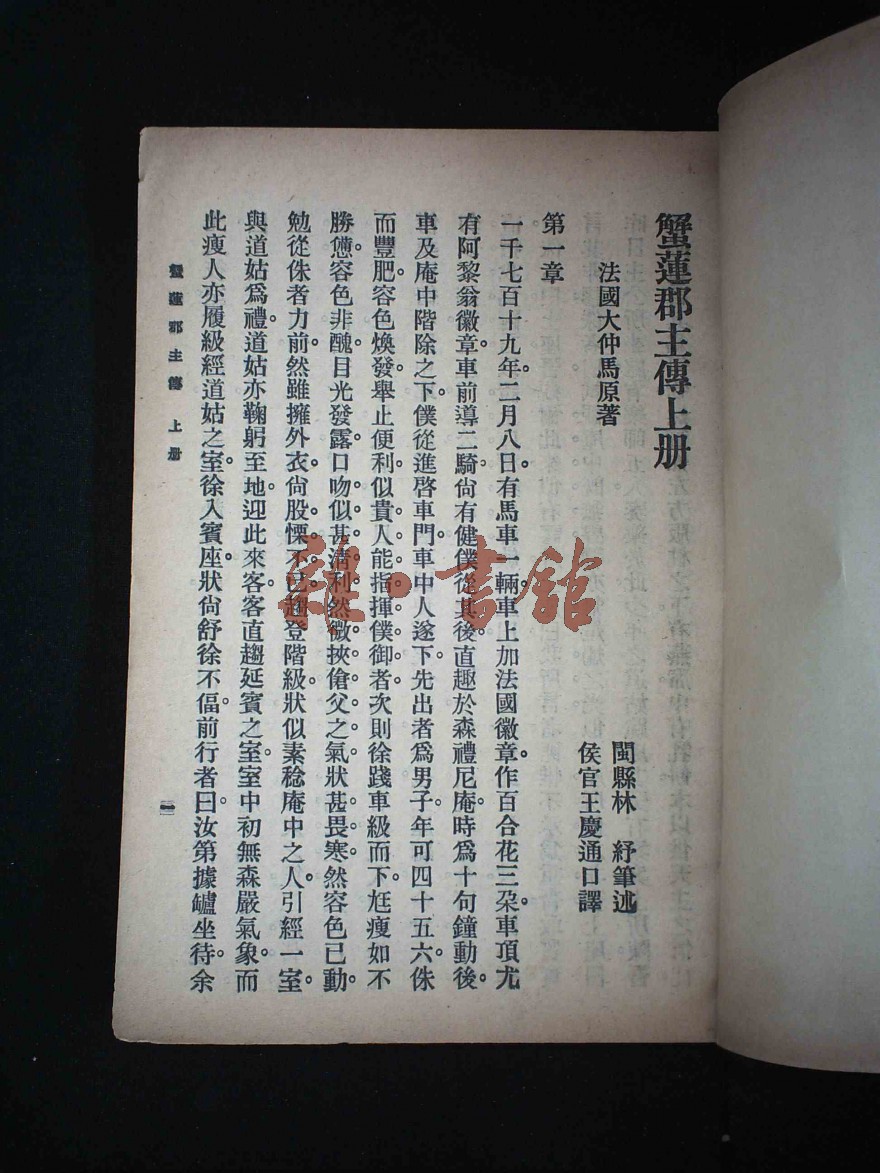 蟹蓮郡主傳上册
法國大仲馬原著
閩縣林　紓筆述
侯官王慶通口譯
第一章
一千七百十九年二月八日有馬車一輛車上加法國徽章作百合花三朶車頂尤
有阿黎翁徽章車前導二騎尙有健僕從其後直趣於森禮尼庵時爲十句鐘動後
車及庵中階除之下僕從進啓車門車中人遂下先出者爲男子年可四十五六侏
而豐肥。容色煥發。舉止便利。似貴人能指揮僕御者。次則徐踐車級而下。尪瘦如不
勝憊。容色非醜。目光發露。口吻似甚清利。然微挾傖父之氣。狀甚畏寒。然容色已動。
勉從侏者力前。然雖擁外衣。尙股慄不已。趨登階級。狀似素稔庵中之人。引經一室。
與道姑爲禮。道姑亦鞠躬至地。迎此來客。客直趨延賓之室。室中初無森嚴氣象。而
此瘦人亦履級經道姑之室。徐入賓座。狀尙舒徐不偪。前行者曰。汝第據罏坐待。余
蟹蓮郡主傳　上册
一
雜·書館